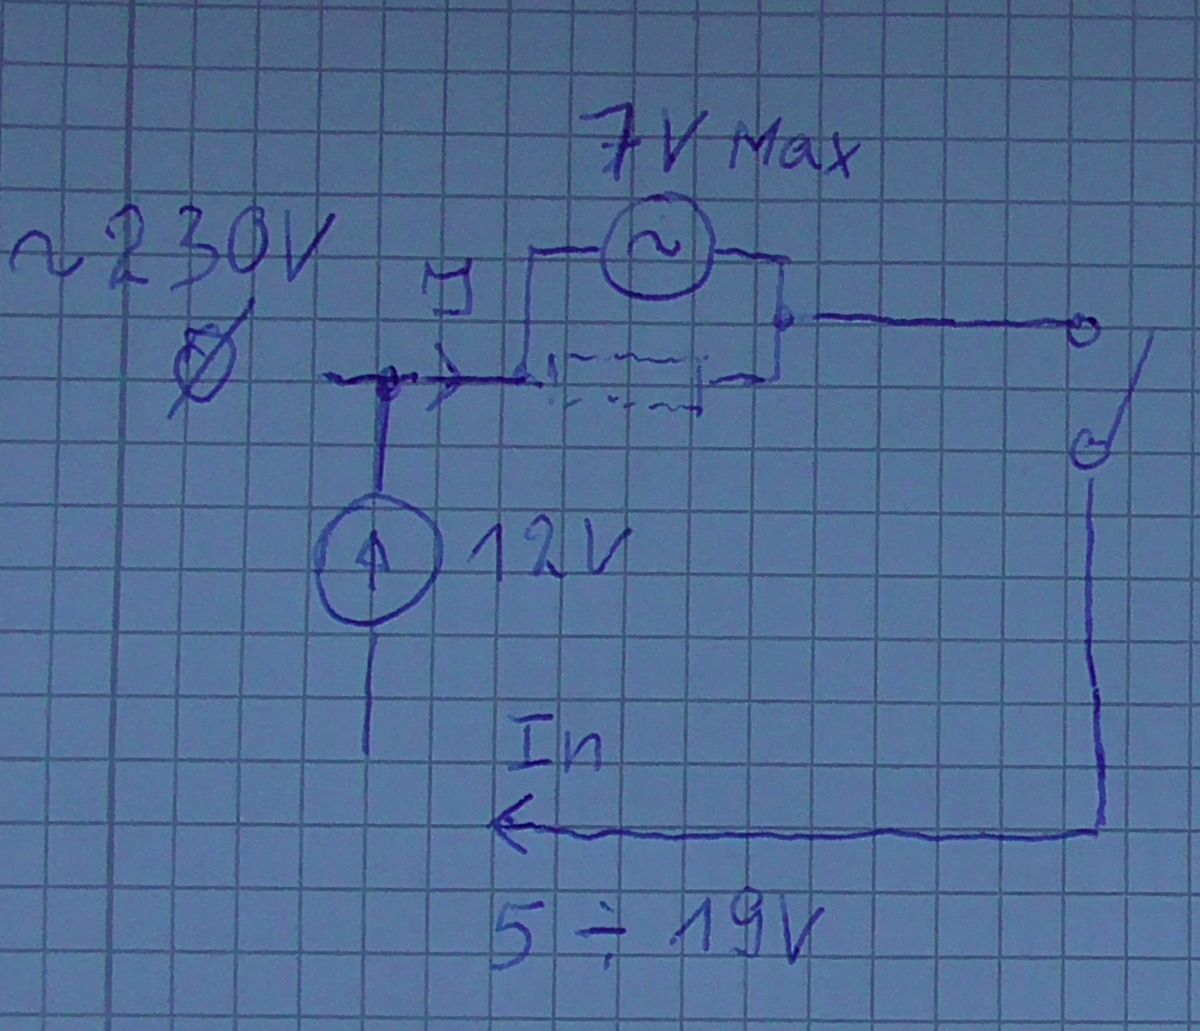 7V Max
~230V
Ø
~
12V
In
5 ÷ 19V